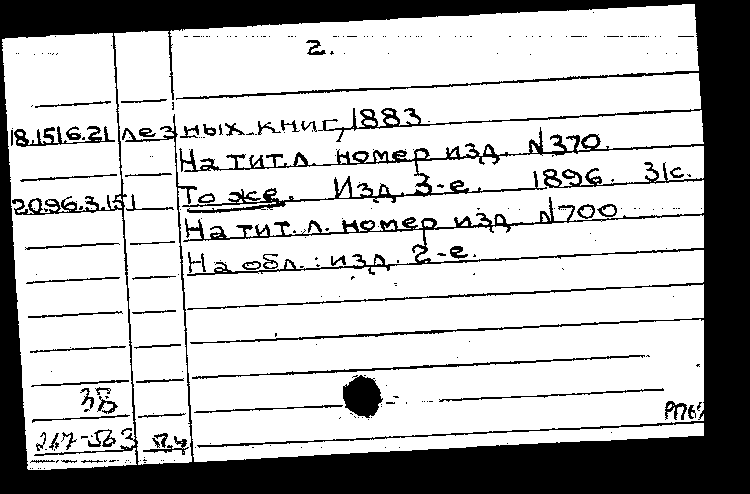 2.
18.151.6.21 лезных книг, 1883.
На тит.л. номер изд. №370.
20.96.3.151 То же. Изд. 3-е. 1896. 31с.
На тит.л. номер изд. №700.
На обл.: изд. 2-е.
38